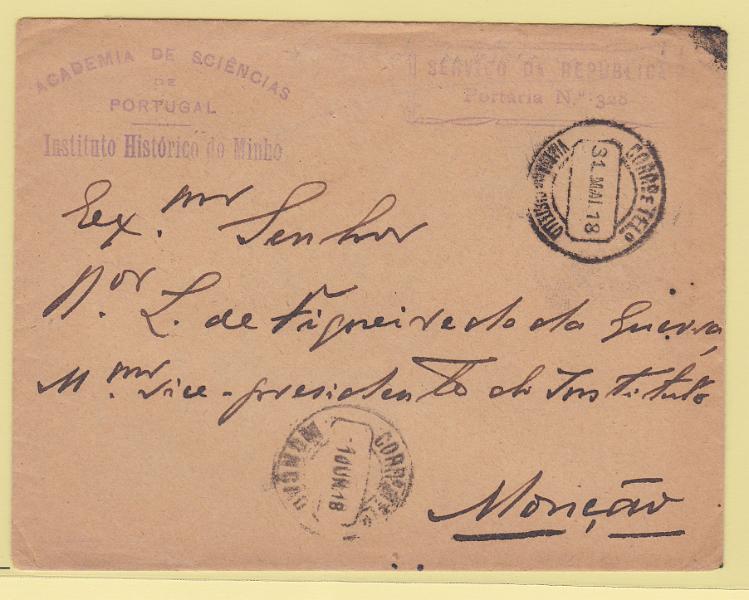 ACADEMIA DE SCIÊNCIAS
DE
PORTUGAL
Instituto Histórico do Minho
SERVIÇO DA REPUBLICA
Portaria N.º 328
CORRº E TELº
31.MAI.18
Exmº Senhor
Dor. L. de Figueiredo da Guerra,
M.mº vice-presidente do Instituto
MONÇÃO
CORRº E TELº
1 JUN.18
Monção